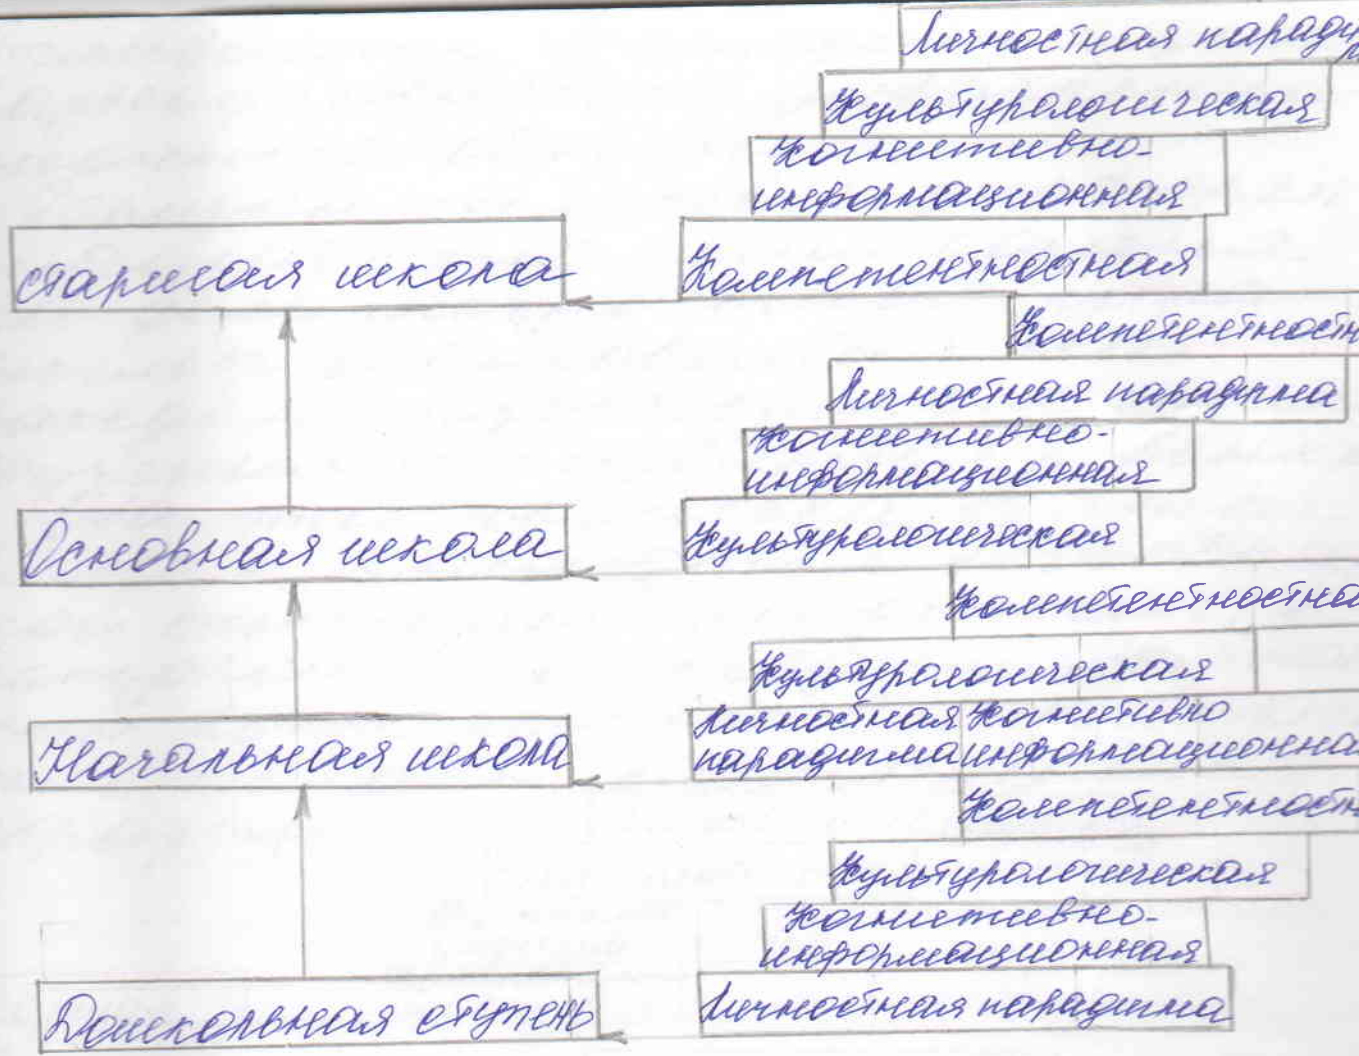 Личностная паради
Культурологическая
Когнитивно-
информационная
старшая школа
Компетентностная
Компетентностн
Личностная парадигма
Когнитивно-
информационная
Основная школа
Культурологическая
Компетентностна
Культурологическая
Начальная школа
Личностная Когнитивно
парадигма информационна
Компетентностн
Культурологическая
Когнитивно-
информационная
Дошкольная ступень
Личностная парадигма